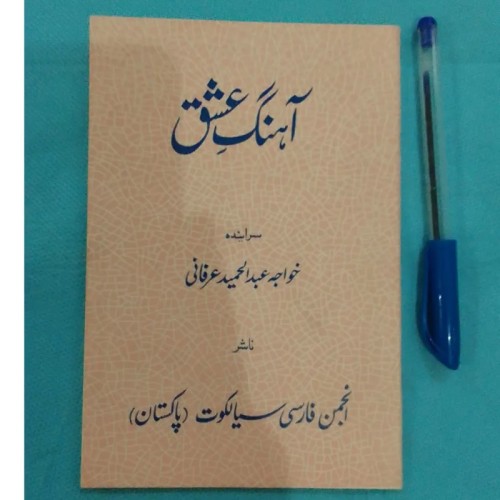 آهنگِ عشق
سراینده
خواجه عبدالحمید عرفانی
ناشر
انجمن فارسی سیالکوت (پاکستان)